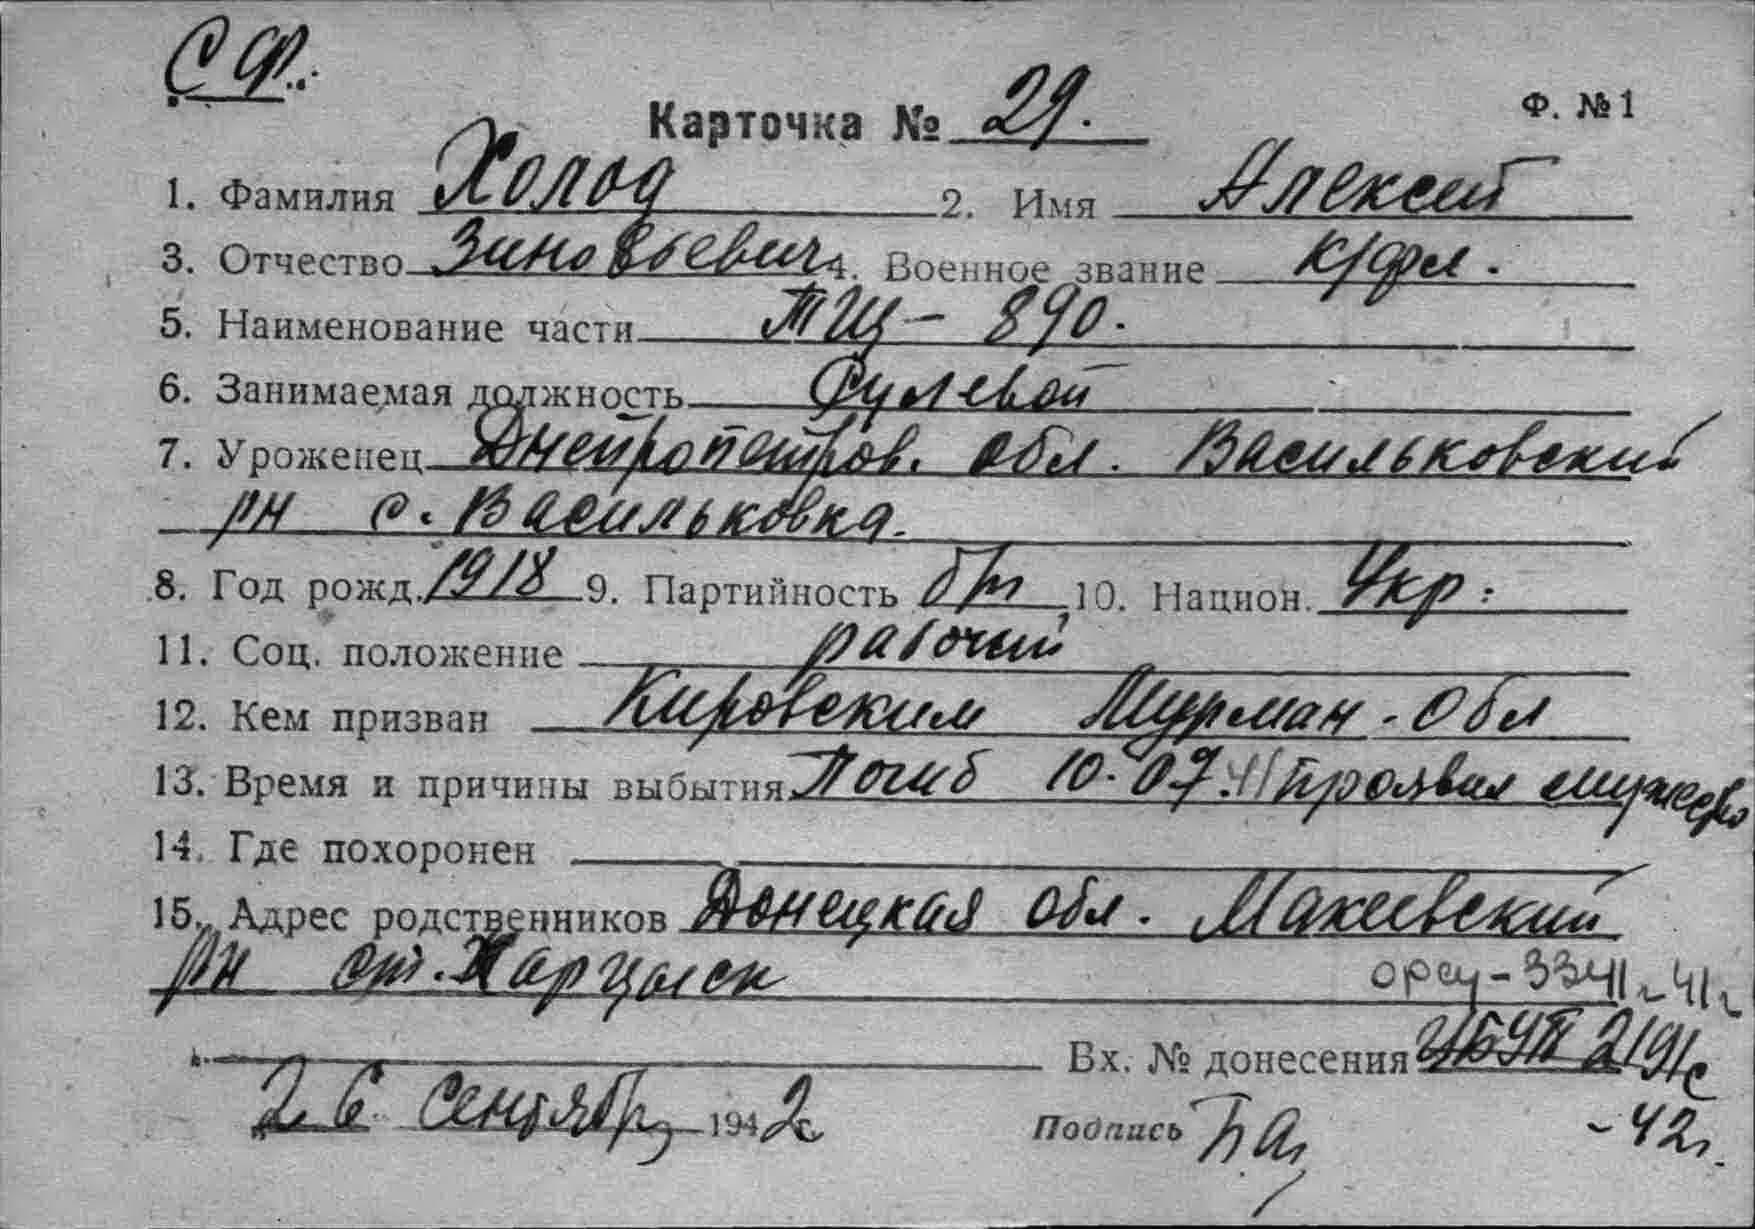 С Ф.
Карточка № 29. Ф. №1
1. Фамилия Холод 2. Имя Алексей
3. Отчество Зиновьевич 4. Военное звание к/фл.
5. Наименование части ТЩ - 890.
6. Занимаемая должность Рулевой
7. Уроженец Днепропетров. обл. Васильковский
рн с. Васильковка.
8. Год рожд. 1918 9. Партийность б/п 10. Национ. Укр.
11. Соц. положение рабочий
12. Кем призван Кировским Мурман. обл
13. Время и причины выбытия Погиб 10.07.41 проявил мужество
14. Где похоронен
15. Адрес родственников Донецкая обл. Макеевский
рн ст. Харцызск
орсу - 3341с 41г
Вх. № донесения 2191с
26 сентября 1942г Подпись - 42г.